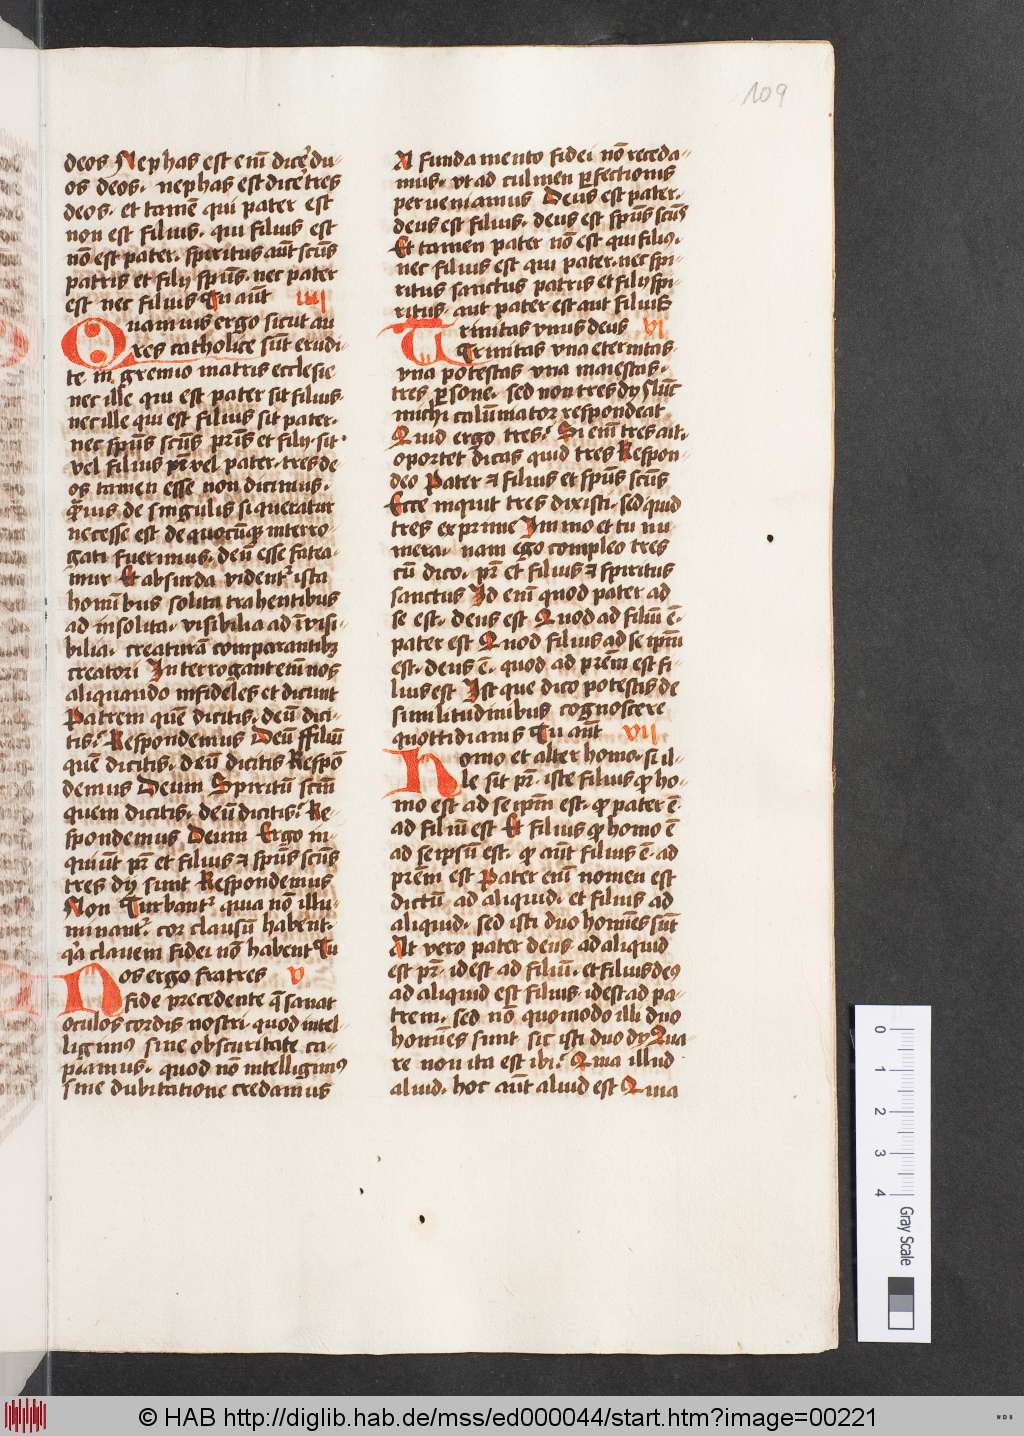 109
deos Nephas est enī dicē du-
os deos. nephas est dicē tres
deos. et tamē qui pater est
non est filius. qui filius est
nō est pater. spiritus aūt scūs
patris et filij spūs. nec pater
est nec filius Tu aūt iiij
Quamuis ergo sicut au
res catholice sūt erudi-
te in gremio matris ecclesie
nec ille qui est pater sit filius.
nec ille qui est filius sit pater.
nec spūs scūs pr̄is et filij. sit.
vel filius pr̄ vel pater. tres de
os tamen esse non dicimus.
q̄uis de singulis si queratur
necesse est de quocūq; interro-
gati fuerimus. deū esse fatea-
mur Et absurda vident᷑ ista
homībus solita trahentibus
ad insolita. visibilia ad īvisi-
bilia. creaturā comparantibꝫ
creatori Interrogant enī nos
aliquando infideles et dicunt
Patrem quē dicitis. deū dici-
tis? Respondemus Deū ffiliū
quē dicitis. deū dicitis Respō
demus Deum Spiritū scūm
quem dicitis. deū dicitis? Re-
spondemus Deum Ergo in-
quiūt pr̄ et filius ⁊ spūs scūs
tres dij sunt Respondemus
Non Turbant᷑ quia nō illu-
minant᷑. cor clausū habent.
q̇a clauem fidei nō habent Tu
Nos ergo fratres v
fide precedente q̄ sanat
oculos cordis nostri. quod intel-
ligimꝰ sine obscuritate ca-
piamus. quod nō intelligimꝰ
sine dubitatione credamus
A fundamento fidei nō receda-
mus. vt ad culmen ꝑfectionis
perueniamus Deus est pater.
deus est filius. deus est spūs scūs
Et tamen pater nō est qui filiꝰ.
nec filius est qui pater. nec spi-
ritus sanctus patris et filij spi-
ritus. aut pater est aut filius
Trinitas vnus deus vi
Trinitas vna eternitas.
vna potestas vna maiestas.
tres ꝑsone. sed non tres dij hūc
michi calūmiator respondeat
Quid ergo tres? Si enī tres ait.
oportet dicas quid tres Respon-
deo Pater ⁊ filius et spūs scūs
Ecce inquit tres dixisti. sed quid
tres exprime Immo et tu nu-
mera. nam ego compleo tres
cū dico. pr̄ et filius ⁊ spiritus
sanctus Id enī quod pater ad
se est. deus est Quod ad filiū ē.
pater est Quod filius ad se ipm̄
est. deus ē. quod ad prēm est fi-
lius est Ist que dico potestis de
similitudinibus cognoscere
quottidianis Tu aūt vii
Homo et alter homo. si il-
le sit pr̄. iste filius ꝙ ho-
mo est ad se ipm̄ est. ꝙ pater ē
ad filiū est Et filius ꝙ homo ē
ad se ipsū est. ꝙ aūt filius ē. ad
prēm est Pater enī nomen est
dictū ad aliquid. et filius ad
aliquid. sed isti duo homīes sūt
At vero pater deus ad aliquid
est pr̄. idest ad filiū. et filius deꝰ
ad aliquid est filius. idest ad pa-
trem. sed nō quomodo illi duo
homīes sunt sic isti duo dij Qua-
re non ita est ibi? Quia illud
aliud. hoc aūt aliud est Quia
0 1 2 3 4
Gray Scale
© HAB http://diglib.hab.de/mss/ed000044/start.htm?image=00221